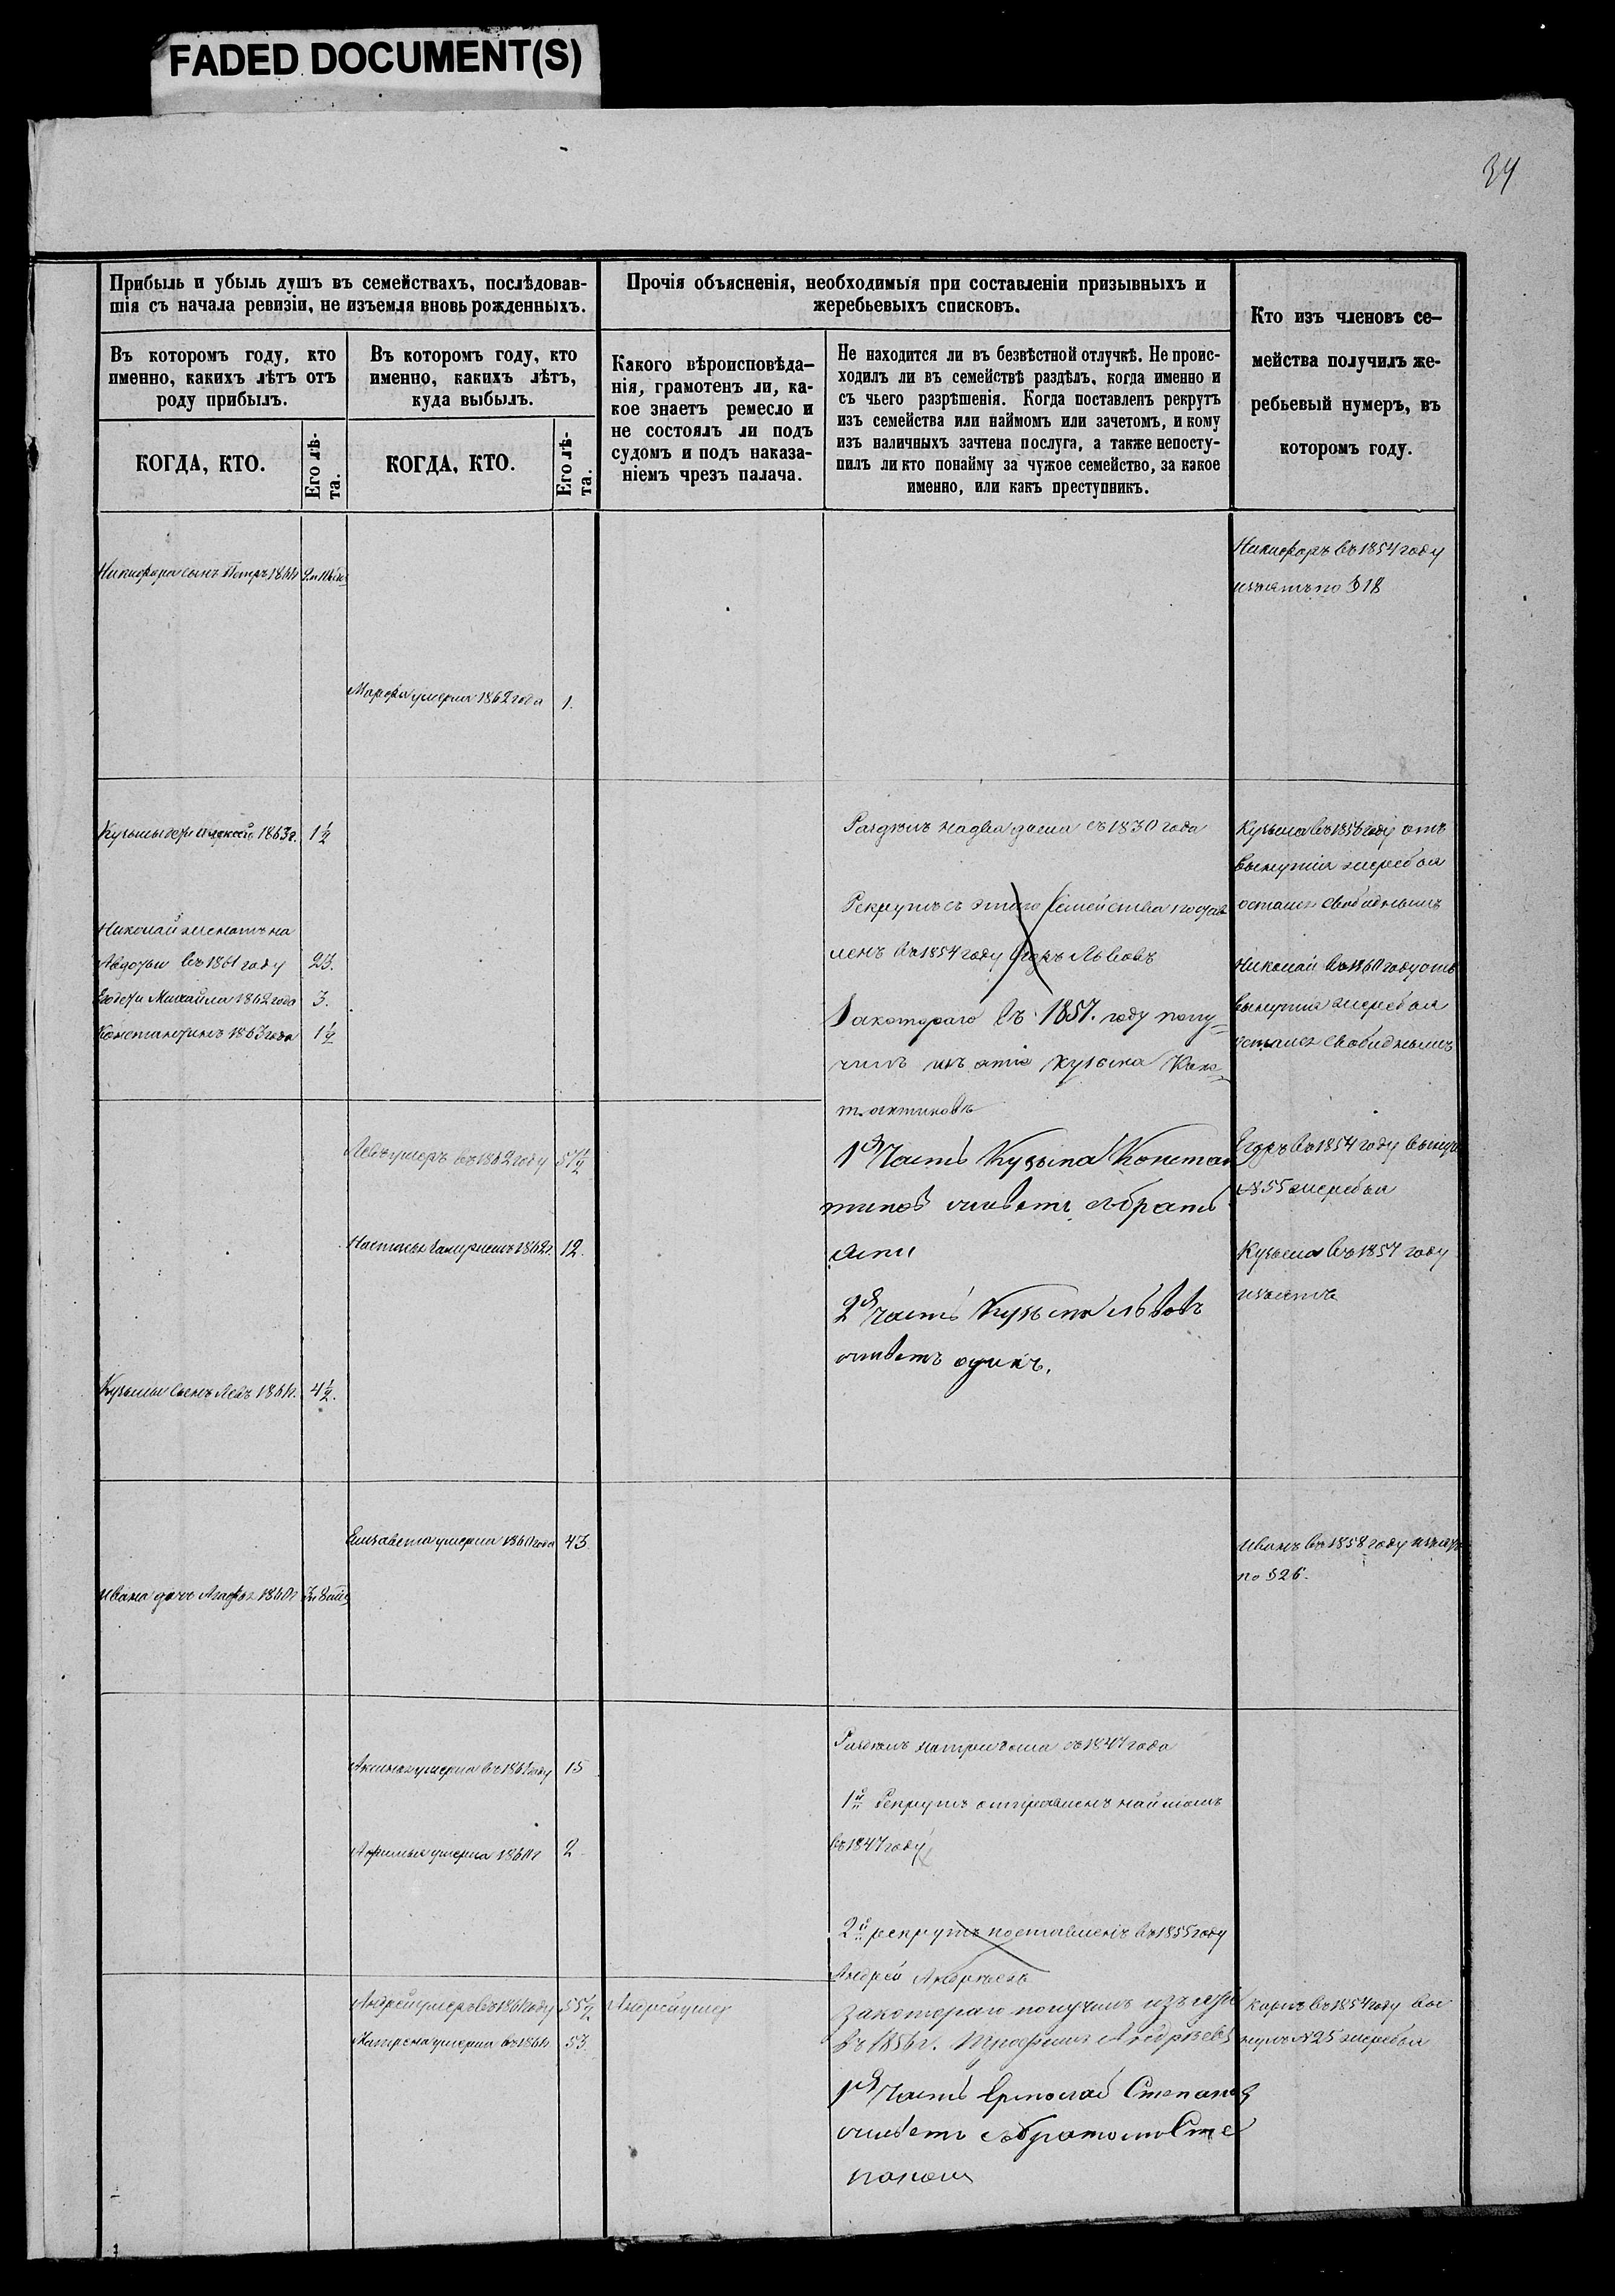 FADED DOCUMENT(S)
34
Прибыль и убыль душъ въ семействахъ, послѣдовав-
шія съ начала ревизіи, не изъемля вновь рожденныхъ.
Въ которомъ году, кто
именно, какихъ лѣтъ отъ
роду прибылъ.
КОГДА, КТО.
Его лѣ-
та.
Въ которомъ году, кто
именно, какихъ лѣтъ,
куда выбылъ.
КОГДА, КТО.
Его лѣ-
та.
Прочія объясненія, необходимыя при составленіи призывныхъ и
жеребьевыхъ списковъ.
Какого вѣроисповѣда-
нія, грамотенъ ли, ка-
кое знаетъ ремесло и
не состоялъ ли подъ
судомъ и подъ наказа-
ніемъ чрезъ палача.
Не находится ли въ безвѣстной отлучкѣ. Не проис-
ходилъ ли въ семействѣ раздѣлъ, когда именно и
съ чьего разрѣшенія. Когда поставленъ рекрутъ
изъ семейства или наймомъ или зачетомъ, и кому
изъ наличныхъ зачтена послуга, а также непосту-
пилъ ли кто понайму за чужое семейство, за какое
именно, или какъ преступникъ.
Кто изъ членовъ се-
мейства получилъ же-
ребьевый нумеръ, въ
которомъ году.
Никифора сынъ Петръ
Никифоръ въ 1854 году
изъятъ по § 18
Марфа умерла 1862 года 1.
Кузьмы Алексей 1863г. 1½
Раздѣлъ на два дыма съ 1830 года
Кузьма въ 1856 году отъ
вынутія жеребья
остался свободнымъ
Рекрутъ съ этого семейства постав
ленъ въ 1854 году Егоръ Львовъ
Николай женатъ на
Авдотьи въ 1861 году 23.
Его дети Михайла 1862 года 3.
Константинъ 1863 года 1½
Николай въ 1860 году отъ
вынутія жеребья
остался свободнымъ
За котораго въ 1857. году полу-
чилъ изъятіе Кузьма Конс-
тантиновъ
Левъ умеръ въ 1862 году 57½
1я Часть Кузьма Констан
тиновъ живетъ съ братъ
ями
Егоръ въ 1854 году вынулъ
№ 55 жеребья
Настасья замужемъ 1862г. 12.
Кузьма въ 1857 году
изъятъ
2я часть Кузьма Львовъ
живетъ одинъ.
Кузьмы сынъ Левъ 4½.
Елизавета умерла 1860 года 43.
Иванъ въ 1858 году изъятъ
по § 26.
Ивана дочь 1860г
Раздѣлъ на три дыма съ 1847 года
Аксинья умерла въ 15
1й Рекрутъ отправленъ наймомъ
въ 1847 году
Афимья умерла 1860г 2.
2й рекрутъ поставленъ въ 1855 году
Андрей Андреевъ
Андрей умеръ въ 1861 году 55½
Андрей умер
За котораго получилъ изъятіе
въ 1856г. Трофимъ Андреевъ
Карпъ въ 1854 году вы
нулъ № 25 жеребья
Матрена умерла въ 53.
1я Часть Ермолай Степановъ
живетъ съ братомъ Сте
паномъ